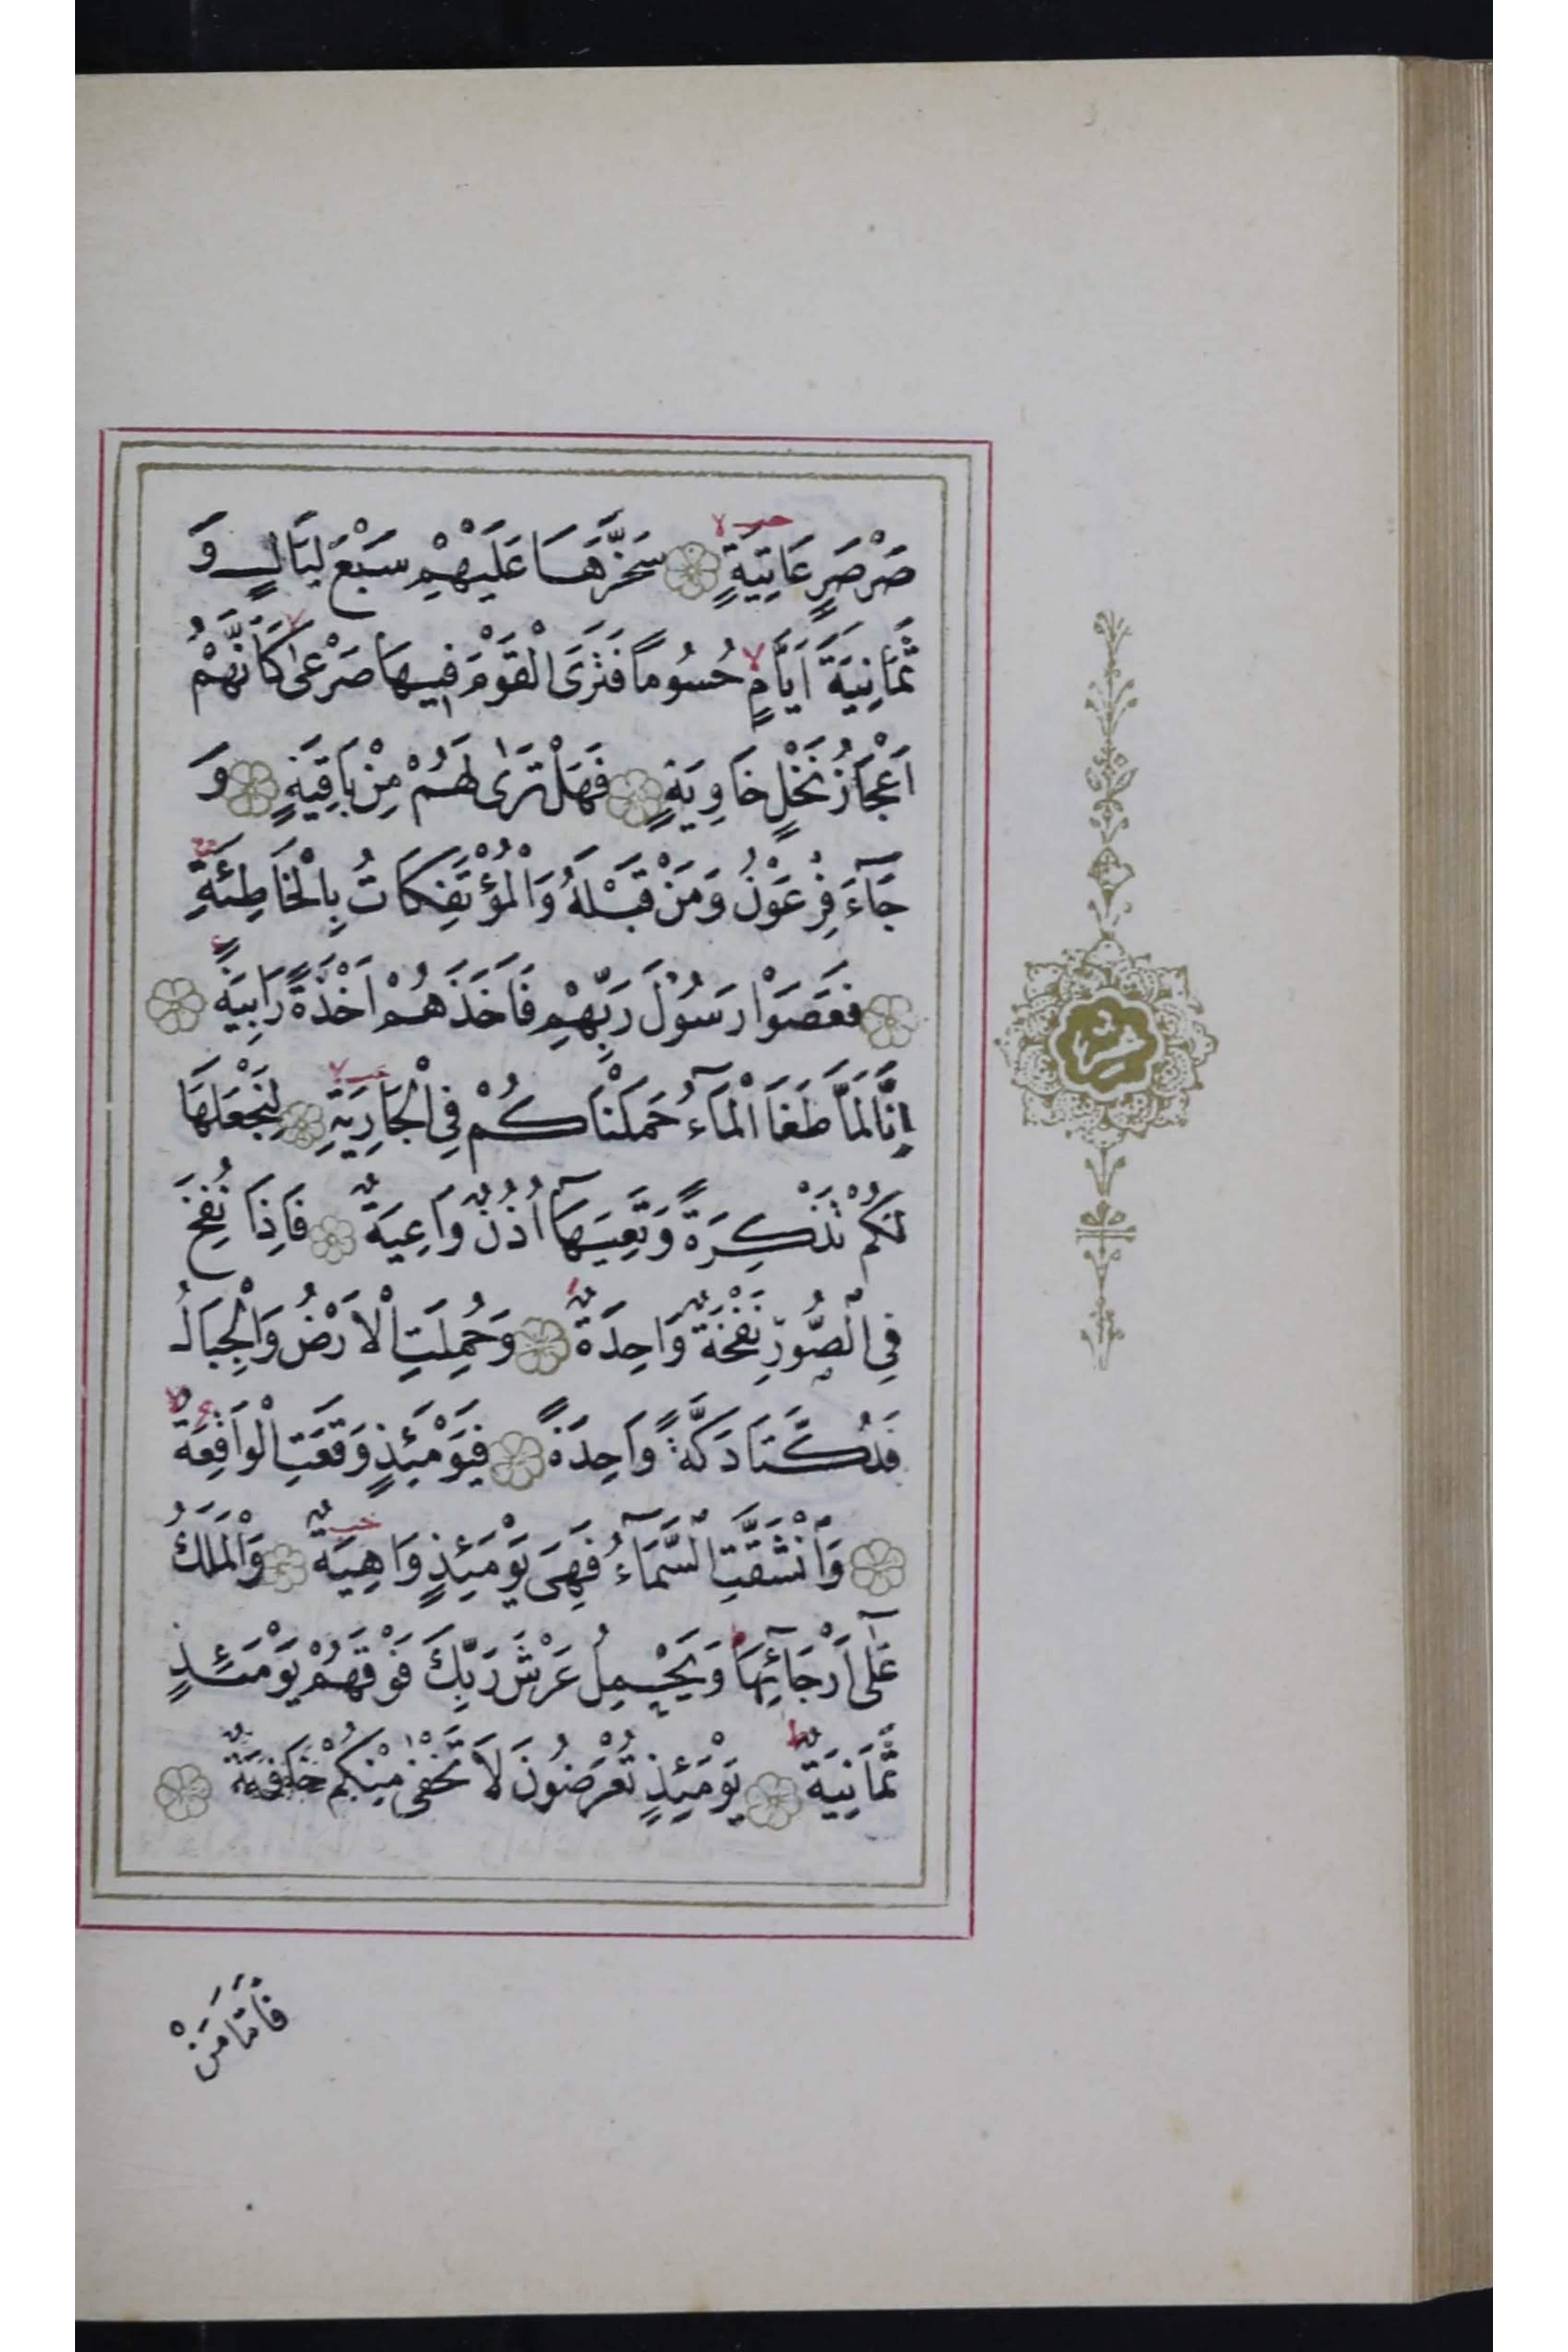 صَرْصَرٍ عَاتِيَةٍ سَخَّرَهَا عَلَيْهِمْ سَبْعَ لَيَالٍ وَ
ثَمَانِيَةَ اَيَّامٍ حُسُومًا فَتَرَى الْقَوْمَ فِيهَا صَرْعٰى كَاَنَّهُمْ
اَعْجَازُ نَخْلٍ خَاوِيَةٍ فَهَلْ تَرٰى لَهُمْ مِنْ بَاقِيَةٍ وَ
جَآءَ فِرْعَوْنُ وَمَنْ قَبْلَهُ وَالْمُؤْتَفِكَاتُ بِالْخَاطِئَةِ
فَعَصَوْا رَسُولَ رَبِّهِمْ فَاَخَذَهُمْ اَخْذَةً رَابِيَةً
اِنَّا لَمَّا طَغَا الْمَآءُ حَمَلْنَاكُمْ فِي الْجَارِيَةِ لِنَجْعَلَهَا
لَكُمْ تَذْكِرَةً وَتَعِيَهَآ اُذُنٌ وَاعِيَةٌ فَاِذَا نُفِخَ
فِي الصُّورِ نَفْخَةٌ وَاحِدَةٌ وَحُمِلَتِ الْاَرْضُ وَالْجِبَالُ
فَدُكَّتَا دَكَّةً وَاحِدَةً فَيَوْمَئِذٍ وَقَعَتِ الْوَاقِعَةُ
وَانْشَقَّتِ السَّمَآءُ فَهِيَ يَوْمَئِذٍ وَاهِيَةٌ وَالْمَلَكُ
عَلٰٓى اَرْجَآئِهَا وَيَحْمِلُ عَرْشَ رَبِّكَ فَوْقَهُمْ يَوْمَئِذٍ
ثَمَانِيَةٌ يَوْمَئِذٍ تُعْرَضُونَ لَا تَخْفٰى مِنْكُمْ خَافِيَةٌ
فَاَمَّا مَنْ